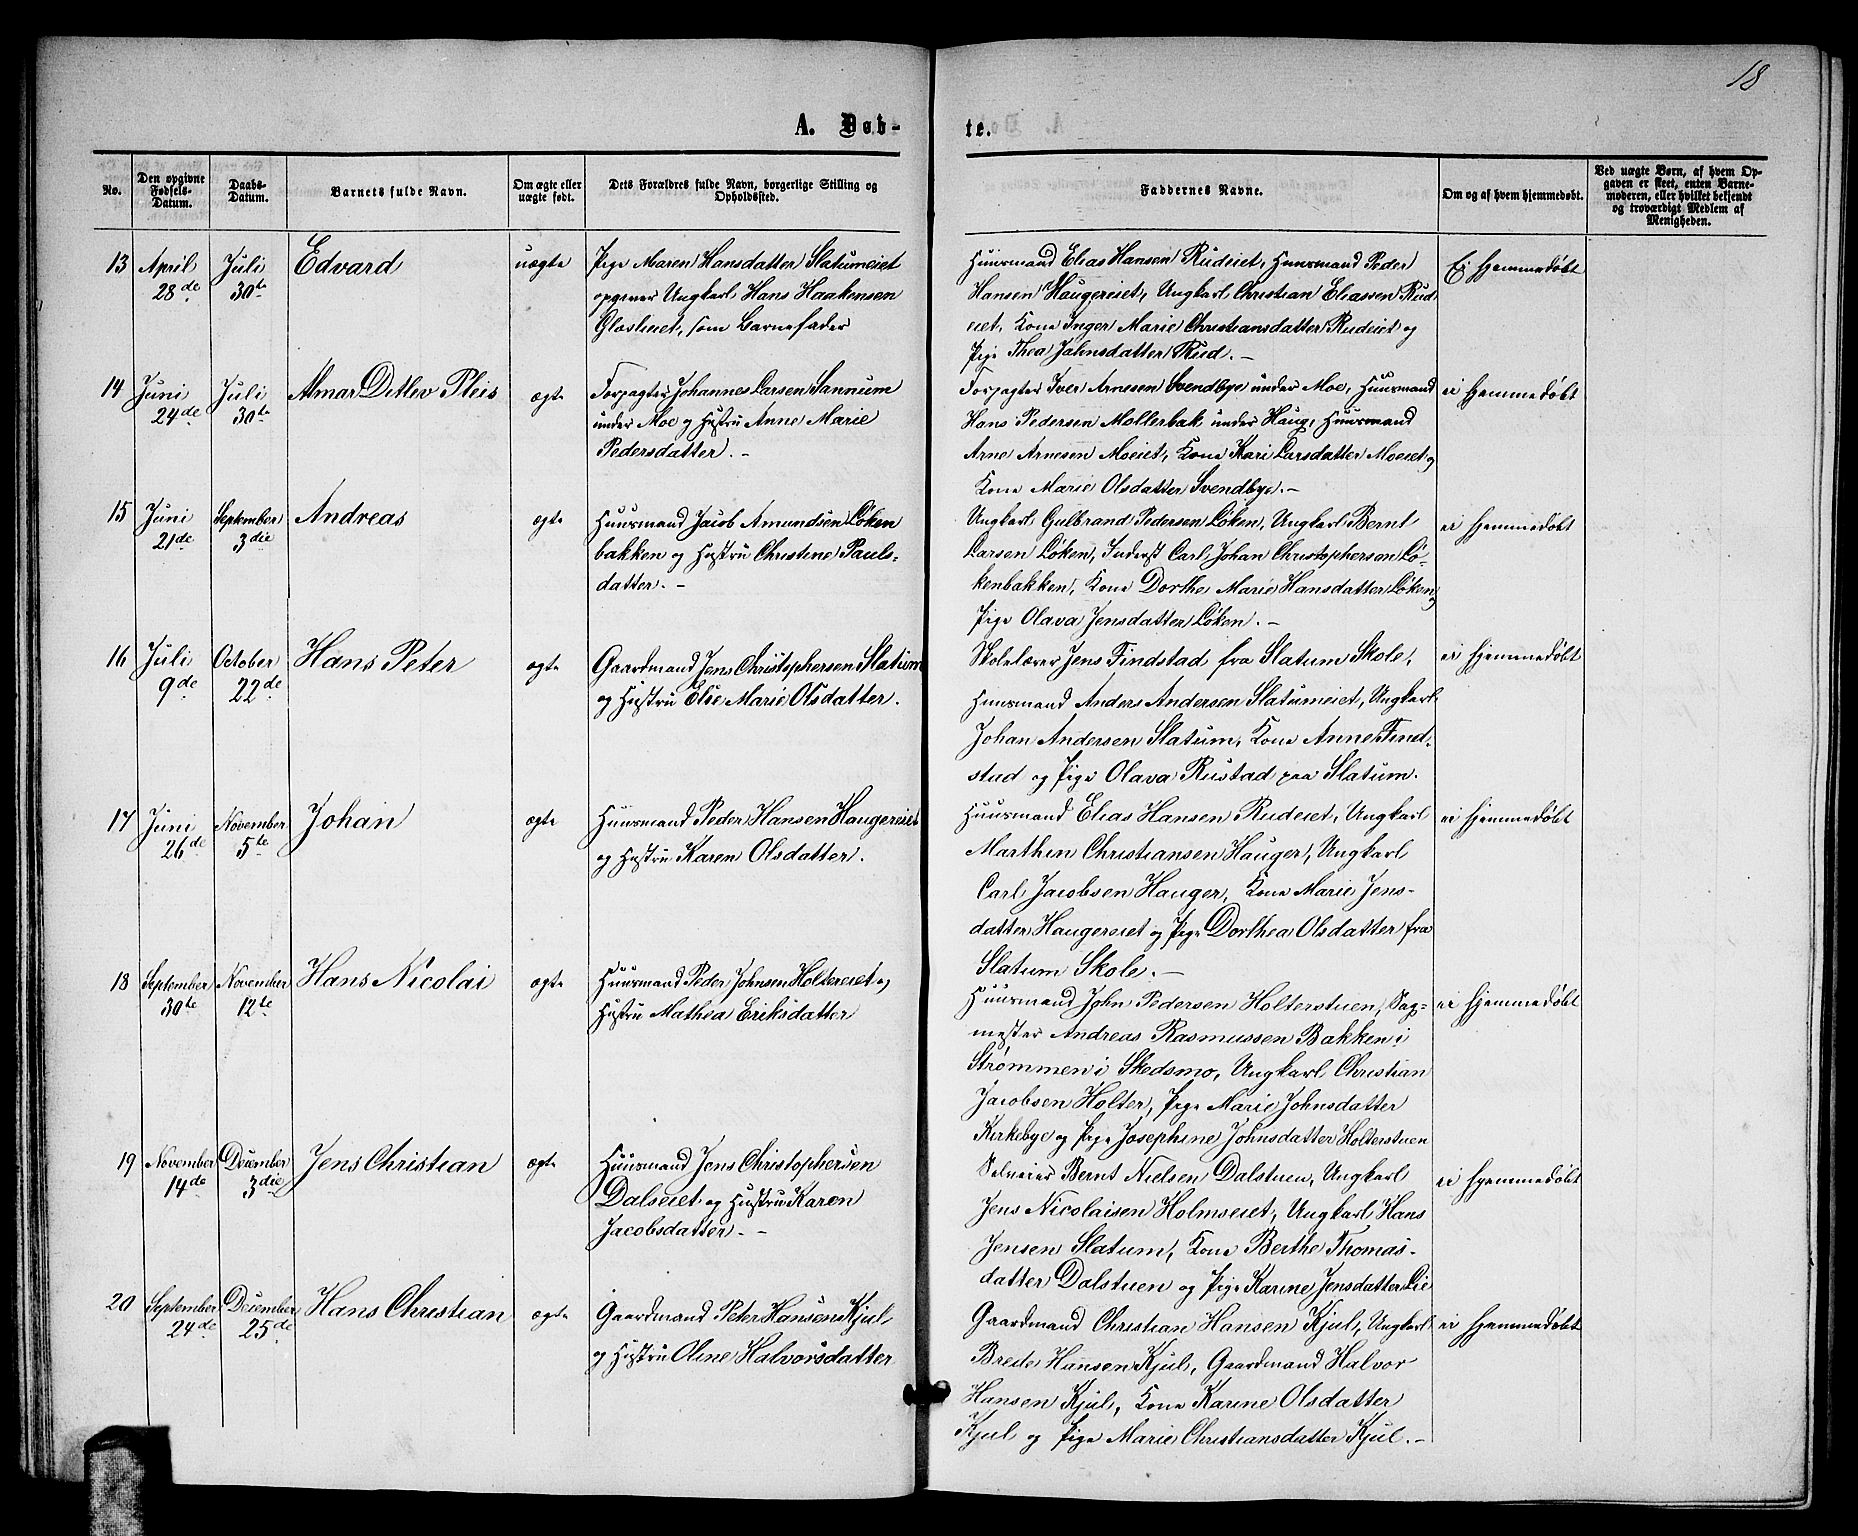 18
A. Døb-
te.
No.
Den opgivne Fødsels-Datum.
Daabs-Datum.
Barnets fulde Navn.
Om ægte eller uægte født.
Dets Forældres fulde Navn, borgerlige Stilling og Opholdssted.
Faddernes Navne.
Om og af hvem hjemmedøbt.
Ved uægte Børn, af hvem Op-
gaven er skeet, enten Barne-
moderen, eller hvilket bekjendt
og troværdigt Medlem af
Menigheden.
13 April 28de Juli 30te Edvard uægte
Pige Maren Hansdatter Slatumeiet
opgiver Ungkarl Hans Haakensen
som Barnefader
Huusmand Elias Hansen Rudeiet, Huusmand Peder
Hansen Haugereiet, Ungkarl Christian Eliassen Rud-
eiet, Kone Inger Marie Christiansdatter Rudeiet og
Pige Thea Johnsdatter Rud. -
Ei hjemmedøbt
14 Juni 24de Juli 30te Almar Ditlev Pleis ægte
Forpagter Johannes Larsen Sannum
under Moe og Hustru Anne Marie
Pedersdatter. -
Forpagter Iver Arnesen Svendbye under Moe, Huusmand
Hans Pedersen Mollerbak under Haug, Huusmand
Arne Arnesen Moeiet, Kone Kari Larsdatter Moeiet og
Kone Marie Olsdatter Svendbye. -
ei hjemmedøbt
15 Juni 21de September 3die Andreas ægte
Huusmand Jacob Amundsen Løken
bakken og Hustru Christine Pauls-
datter. -
Ungkarl Gulbrand Pedersen Løken, Ungkarl Bernt
Larsen Løken, Inderst Carl Johan Christophersen Lø-
kenbakken, Kone Dorthe Marie Hansdatter Løken og
Pige Olava Jensdatter Løken. -
ei hjemmedøbt
16 Juli 9de October 22de Hans Peter ægte
Gaardmand Jens Christophersen Slatum
og Hustru Else Marie Olsdatter.
Skolelærer Jens Findstad fra Slatum Skole,
Huusmand Anders Andersen Slatumeiet, Ungkarl
Johan Andersen Slatum, Kone Anne Find-
stad og Pige Olava Rustad paa Slatum.
ei hjemmedøbt
17 Juni 26de November 5te Johan ægte
Huusmand Peder Hansen Haugereiet
og Hustru Karen Olsdatter.
Huusmand Elias Hansen Rudeiet, Ungkarl
Marthin Christiansen Hauger, Ungkarl
Carl Jacobsen Hauger, Kone Marie Jens-
datter Haugereiet og Pige Dorthea Olsdatter fra
Slatum Skole. -
ei hjemmedøbt
18 September 30te November 12te Hans Nicolai ægte
Huusmand Peder Johnsen Holtereiet og
Hustru Mathea Eriksdatter
Huusmand John Pedersen Holterstuen, Sag-
mester Andreas Rasmussen Bakken i
Strømmen i Skedsmo, Ungkarl Christian
Jacobsen Holter, Pige Marie Johnsdatter
Kirkebye og Pige Josephine Johnsdatter Holterstuen
ei hjemmedøbt
19 November 14de December 3die Jens Christian ægte
Huusmand Jens Christophersen
Dalseiet og Hustru Karen
Jacobsdatter. -
Selveier Bernt Nielsen Dalstuen, Ungkarl
Jens Nicolaisen Holmseiet, Ungkarl Hans
Jensen Slatum, Kone Berthe Thomas-
datter Dalstuen og Pige Karine Jensdatter Lie
ei hjemmedøbt
20 September 24de December 25de Hans Christian ægte
Gaardmand Peter Hansen Kjul
og Hustru Oline Halvorsdatter
Gaardmand Christian Hansen Kjul, Ungkarl
Brede Hansen Kjul, Gaardmand Halvor
Hansen Kjul, Kone Karine Olsdatter
Kjul og Pige Marie Christiansdatter Kjul. -
ei hjemmedøbt